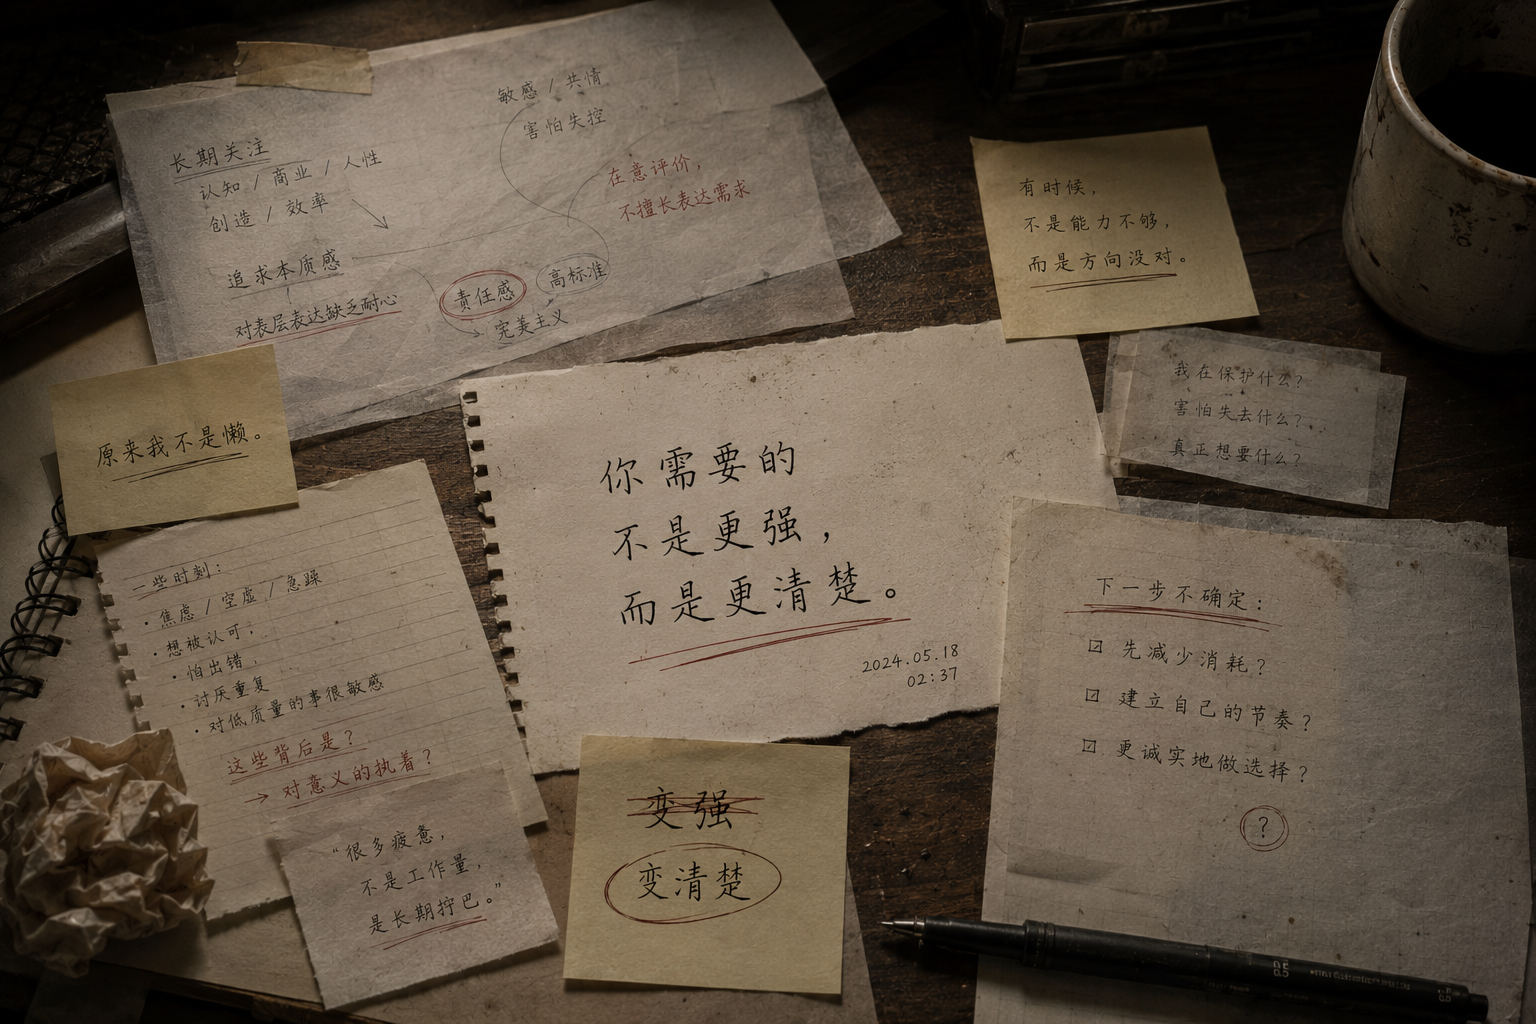 敏感 / 共情
害怕失控
长期关注
认知 / 商业 / 人性
创造 / 效率
在意评价，
不擅长表达需求
追求本质感
对表层表达缺乏耐心
责任感
高标准
完美主义
有时候，
不是能力不够，
而是方向没对。
我在保护什么？
害怕失去什么？
真正想要什么？
原来我不是懒。
你需要的
不是更强，
而是更清楚。
2024.05.18
02:37
一些时刻：
· 焦虑 / 空虚 / 急躁
· 想被认可，
· 怕出错，
· 讨厌重复
· 对低质量的事很敏感
这些背后是？
→ 对意义的执着？
“很多疲惫，
不是工作量，
是长期拧巴。”
变强
变清楚
下一步不确定：
☑ 先减少消耗？
☑ 建立自己的节奏？
☑ 更诚实地做选择？
?
0.5